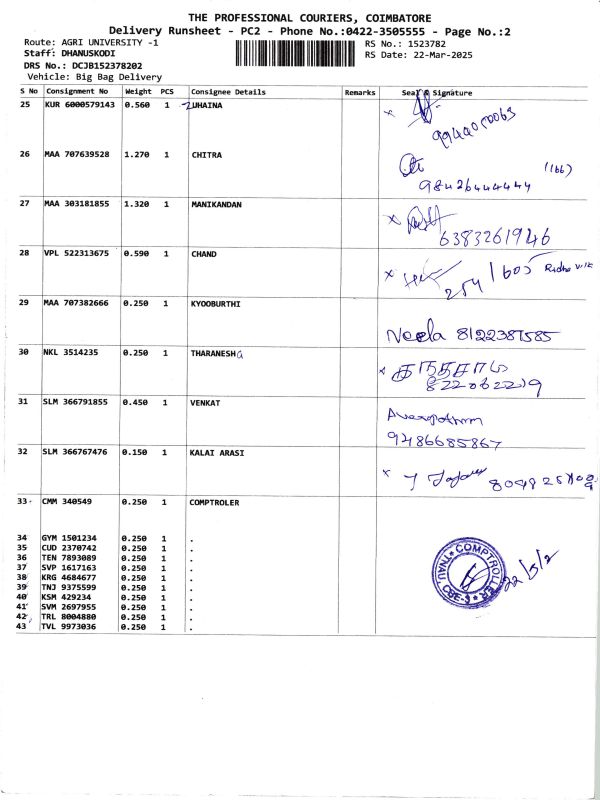 THE PROFESSIONAL COURIERS, COIMBATORE
Delivery Runsheet - PC2 - Phone No.:0422-3505555 - Page No.:2
Route: AGRI UNIVERSITY -1
RS No.: 1523782
Staff: DHANUSKODI
RS Date: 22-Mar-2025
DRS No.: DCJB152378202
Vehicle: Big Bag Delivery
S No Consignment No Weight PCS Consignee Details Remarks Seal & Signature
25 KUR 6000579143 0.560 1 ZUHAINA
26 MAA 707639528 1.270 1 CHITRA
(166)
9842644444
27 MAA 303181855 1.320 1 MANIKANDAN
6383261946
28 VPL 522313675 0.590 1 CHAND
254/605
29 MAA 707382666 0.250 1 KYOOBURTHI
Neela 8122387585
30 NKL 3514235 0.250 1 THARANESHa
822062219
31 SLM 366791855 0.450 1 VENKAT
9486685867
32 SLM 366767476 0.150 1 KALAI ARASI
33 CMM 340549 0.250 1 COMPTROLER
34 GYM 1501234 0.250 1 .
35 CUD 2370742 0.250 1 .
36 TEN 7893089 0.250 1 .
37 SVP 1617163 0.250 1 .
38 KRG 4684677 0.250 1 .
39 TNJ 9375599 0.250 1 .
40 KSM 429234 0.250 1 .
41 SVM 2697955 0.250 1 .
42 TRL 8004880 0.250 1 .
43 TVL 9973036 0.250 1 .
COMPTROLLER
TNAU, CBE-3